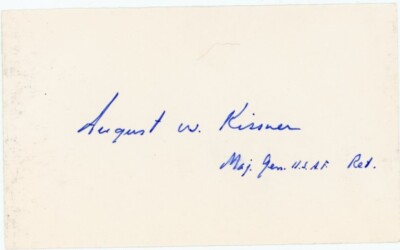 August W. Kissner
Maj. Gen. U.S.A.F. Ret.